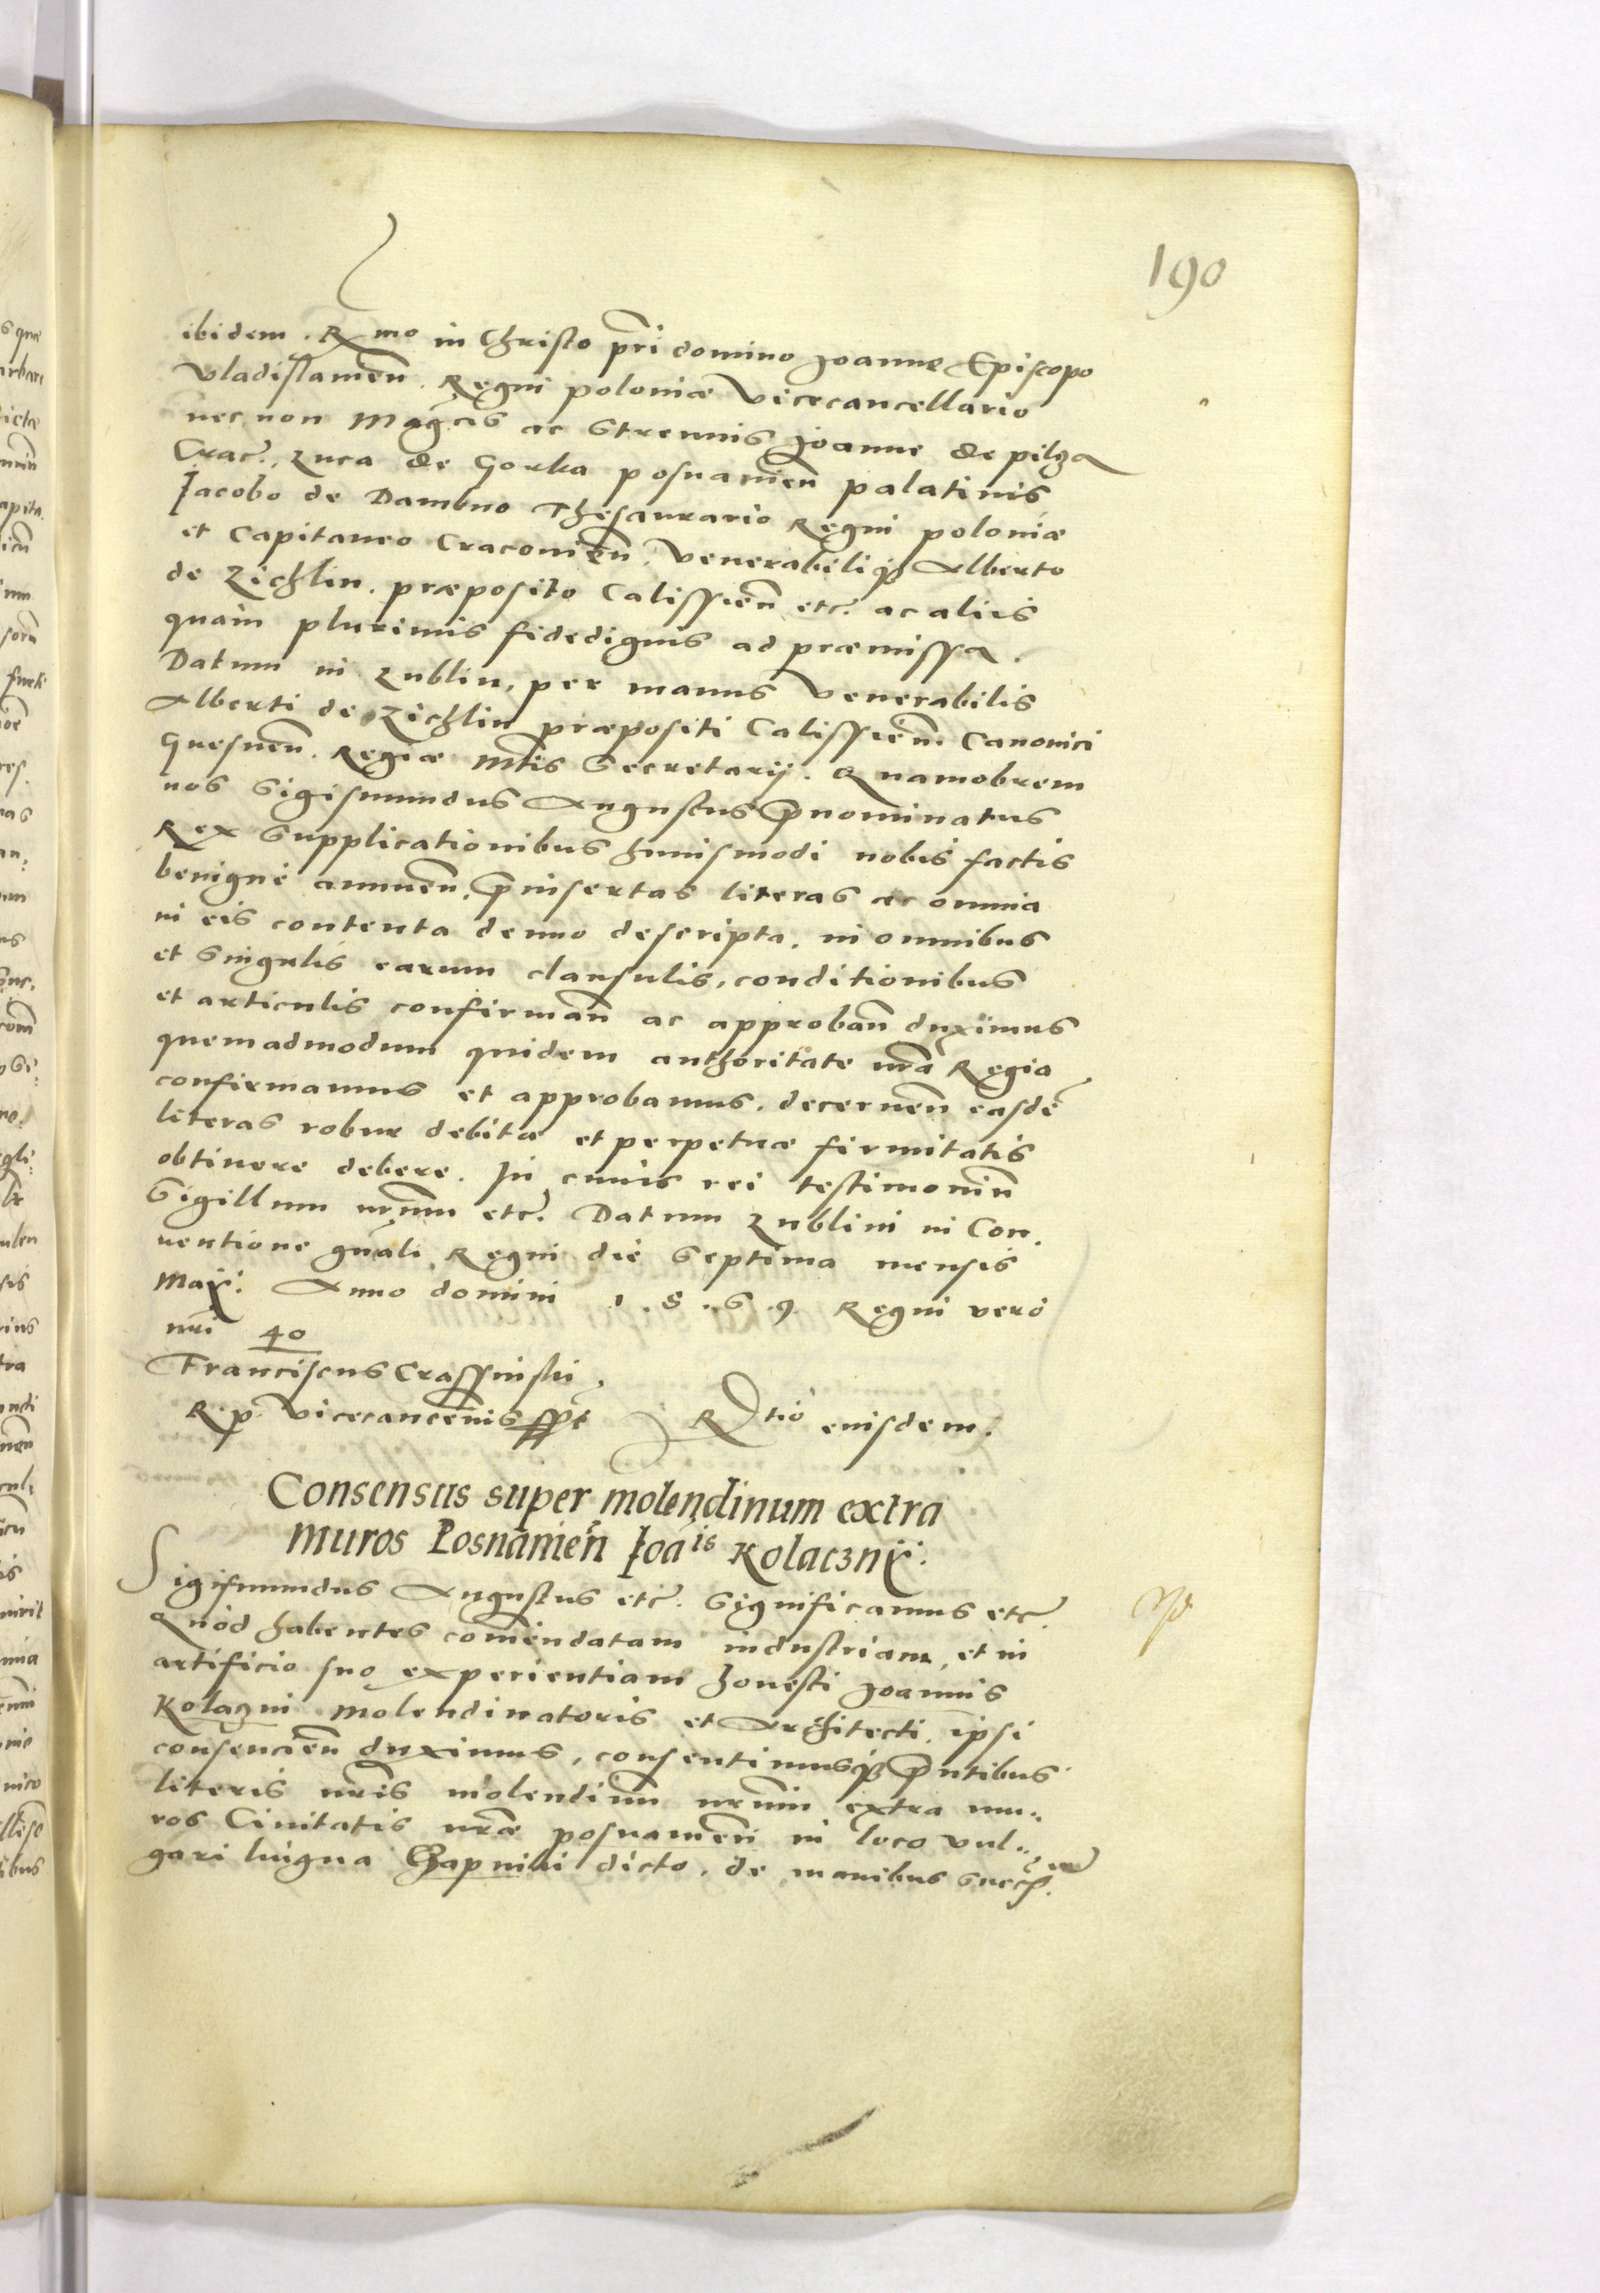 190
ibidem. Rmo in Christo pri domino Joanne Episcopo
Vladislamen. Regni poloniæ Vicecancellario
nec non Magcis ac Strenuis Joanne de pilza
Crac., Luca de Gorka posnanien palatinis
Jacobo de Dambno Thesaurario Regni poloniæ
et Capitaneo Cracovien, Venerabiliq Alberto
de Zichlin. præposito Calissien etc. ac aliis
quàm plurimis fidedignis ad præmissa.
Datum in Lublin, per manus venerabilis
Alberti de Zichlin præpositi Calissien. Canonici
Gnesnen. Regiæ Mtis Secretarij. Quamobrem
nos Sigismundus Augustus prænominatus
Rex Supplicationibus huiusmodi nobis factis
benignè annuen, præinsertas literas ac omnia
in eis contenta denuo descripta. in omnibus
et singulis earum clausulis, conditionibus
et articulis confirman ac approban duximus
quemadmodum quidem authoritate nra Regia
confirmamus et approbamus. decernen easdē
literas robur debitæ et perpetuæ firmitatis
obtinere debere. In cuius rei testimoniū
Sigillum nrum etc. Datum Lublini in Con.
ventione gnali Regni die Septima mensis
Maÿ. Anno domini 1.5.6.9. Regni verò
nri 40
Franciscus Crassinski
R. p. Vicecancellarius sspt Rtio eiusdem.
Consensus super molendinum extra
muros Posnanien Joāis Kolaczny.
Sigismundus Augustus etc. Significamus etc.
Quod habentes comendatam industriam, et in
artificio suo experientiam honesti Joannis
Kolaczni Molendinatoris et Architecti, ipsi
consencien duximus, consentimusq præntibus
literis nris molendinū nrum extra mu..
ros Civitatis nræ posnanien in loco vul..
gari lingua dicto. de manibus